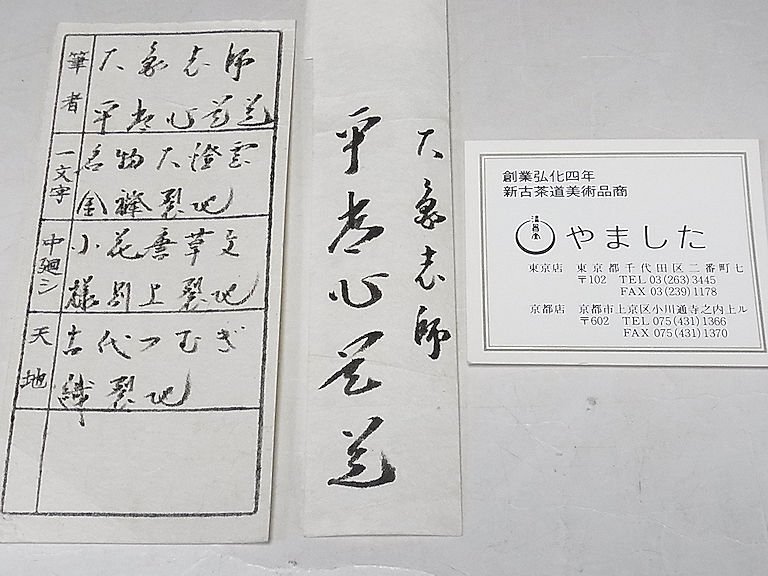 筆者
大象老師
平常心是道
一文字
名物大燈金襴裂地
中廻シ
小花唐草文様別上裂地
天地
古代つむぎ織裂地
大象老師
平常心是道
創業弘化四年
新古茶道美術品商
やました
東京店 東京都千代田区二番町七
〒102 TEL 03(263)3445
FAX 03(239)1178
京都店 京都市上京区小川通寺之内上ル
〒602 TEL 075(431)1366
FAX 075(431)1370